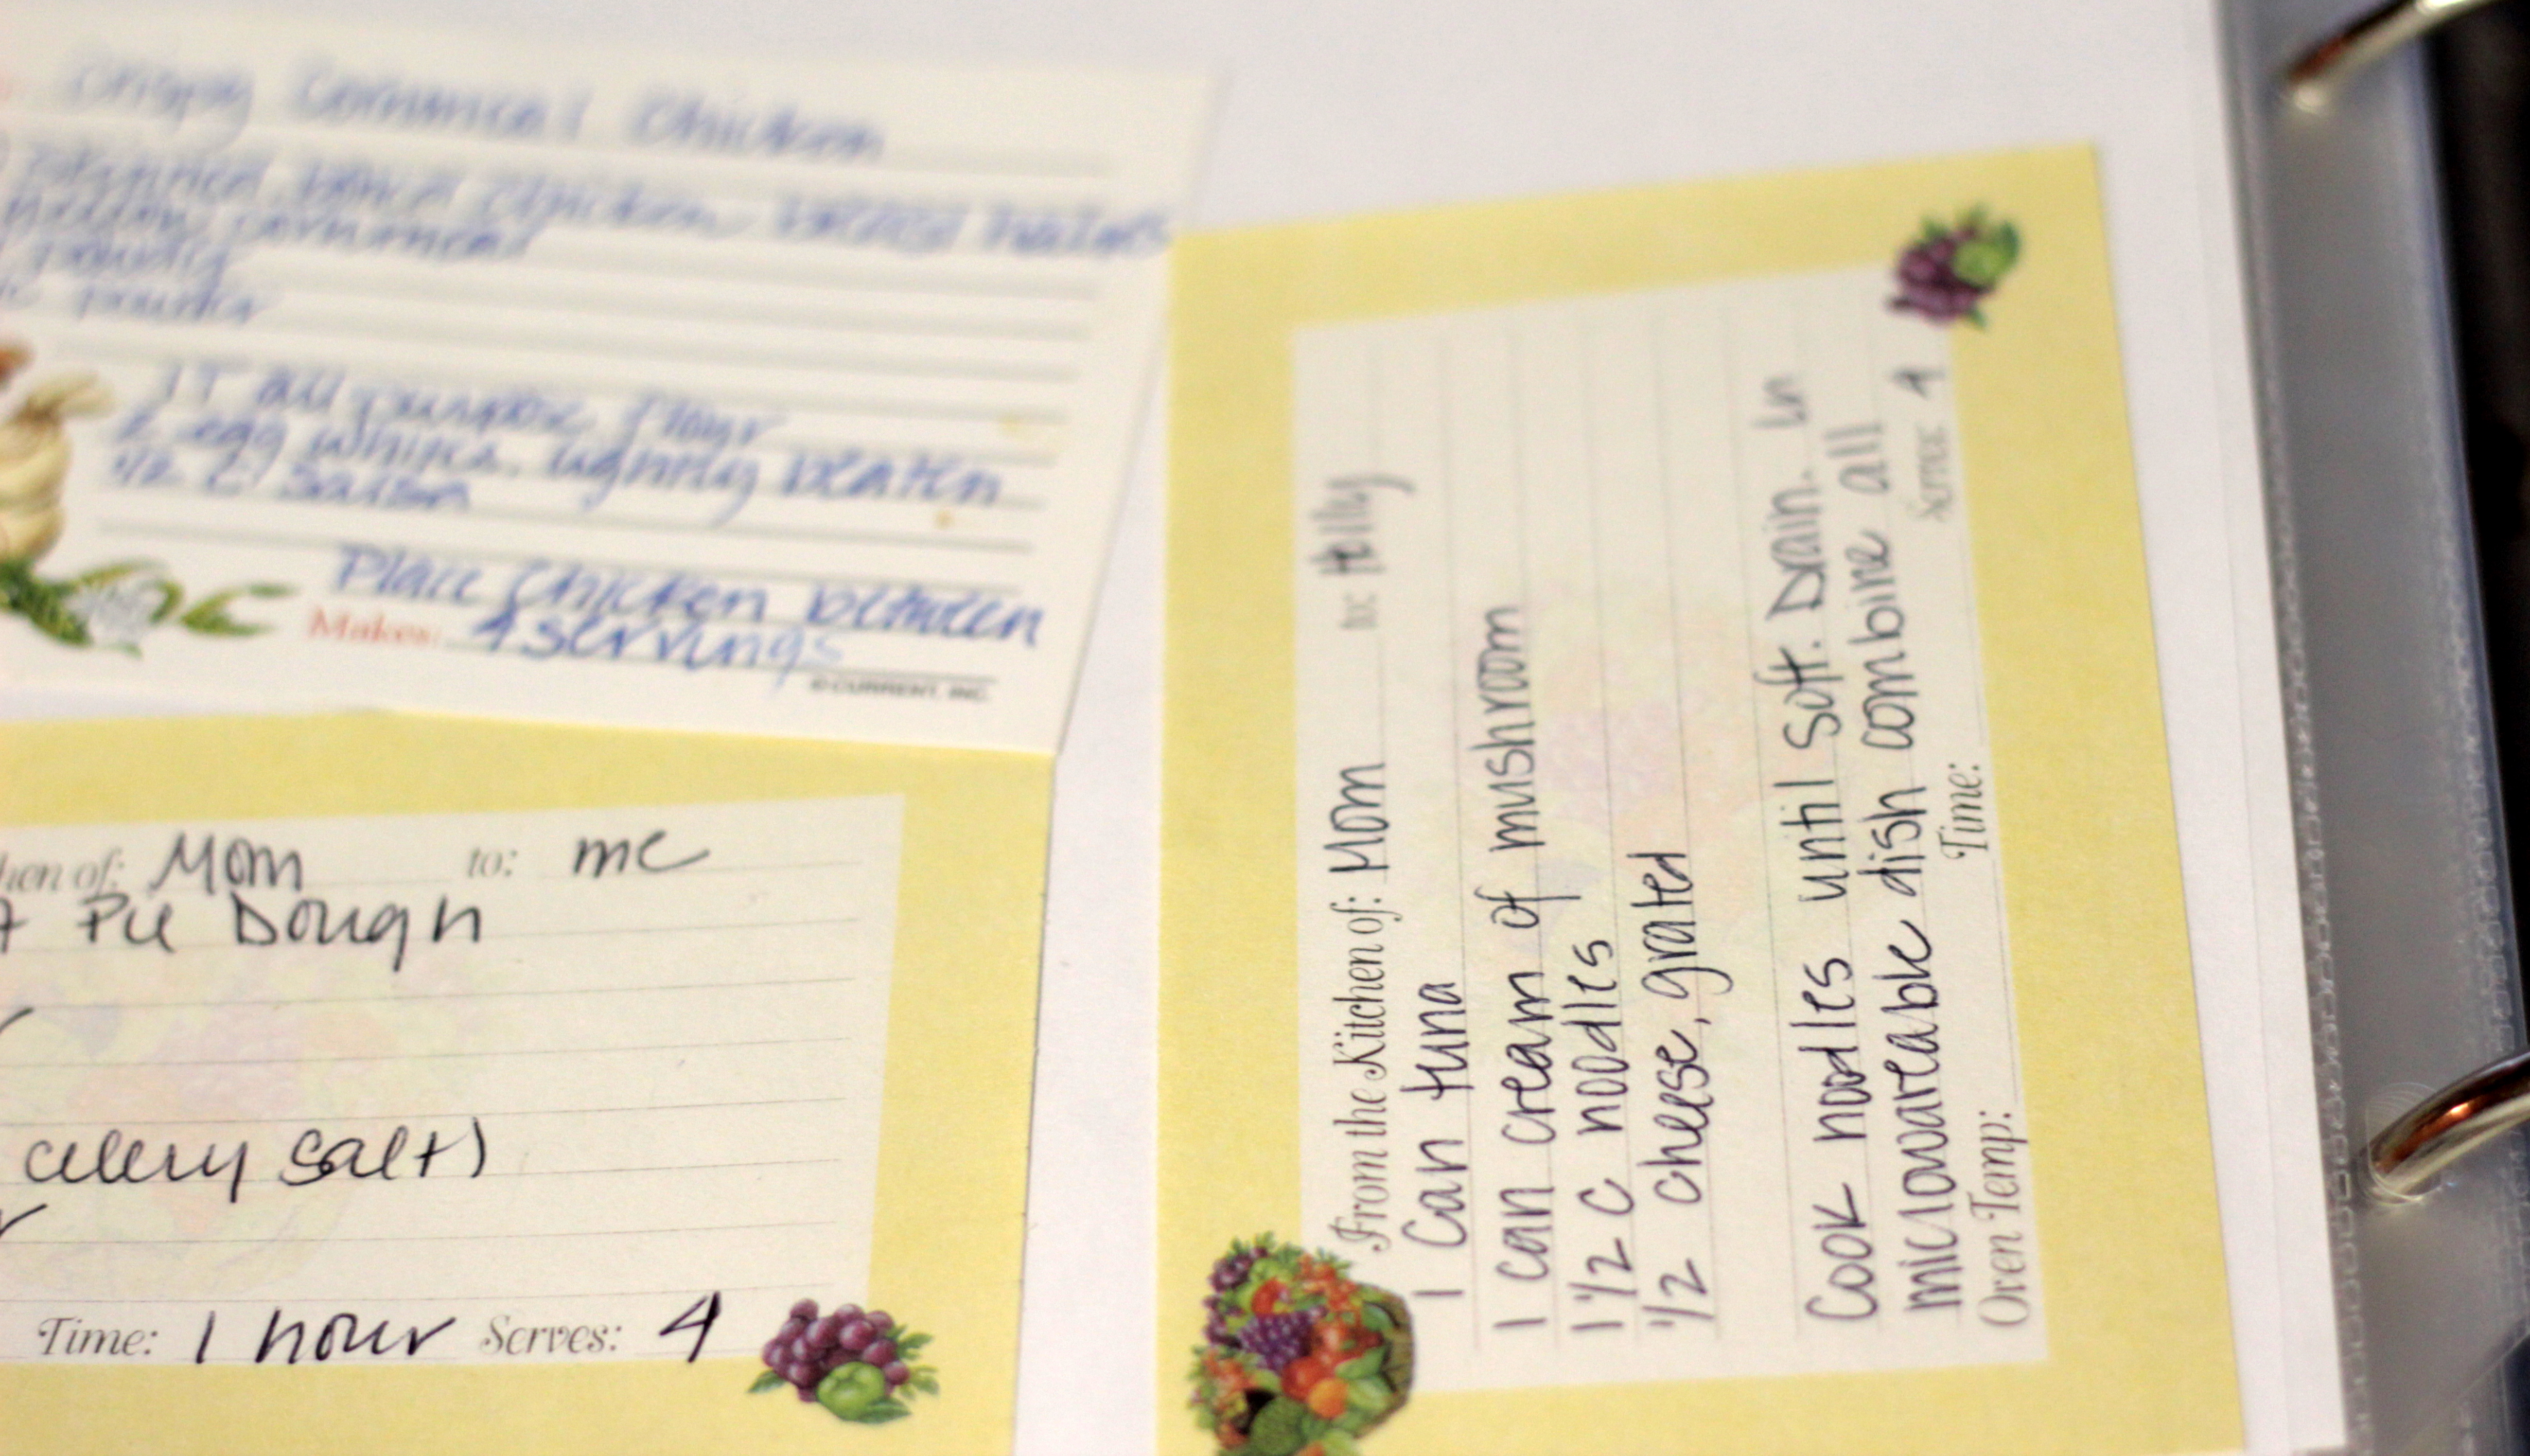 Crispy Cornmeal Chicken
skinned, boned chicken breast halves
yellow cornmeal
powder
1 T all purpose flour
2 egg whites, lightly beaten
1/2 c. salsa
Place chicken between
Makes: 4 servings
© CURRENT, INC.
hen of: Mom to: me
Pie Dough
celery salt)
Time: 1 hour Serves: 4
From the Kitchen of: Mom to: Holly
1 Can tuna
1 can cream of mushroom
1 1/2 c noodles
1/2 cheese, grated
Cook noodles until soft. Drain. In
microwaveable dish combine all
Oven Temp: Time: Serves 4